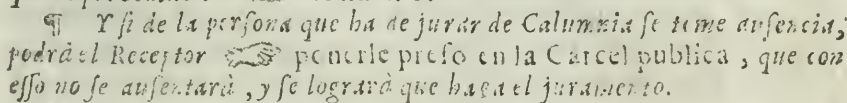 ¶ Y ſi de la perſona que ha de jurar de Calumnia ſe teme auſencia,
podrà el Receptor ☞ ponerle preſo en la Carcel publica, que con
eſſo no ſe auſentarà, y ſe lograrà que haga el juramento.